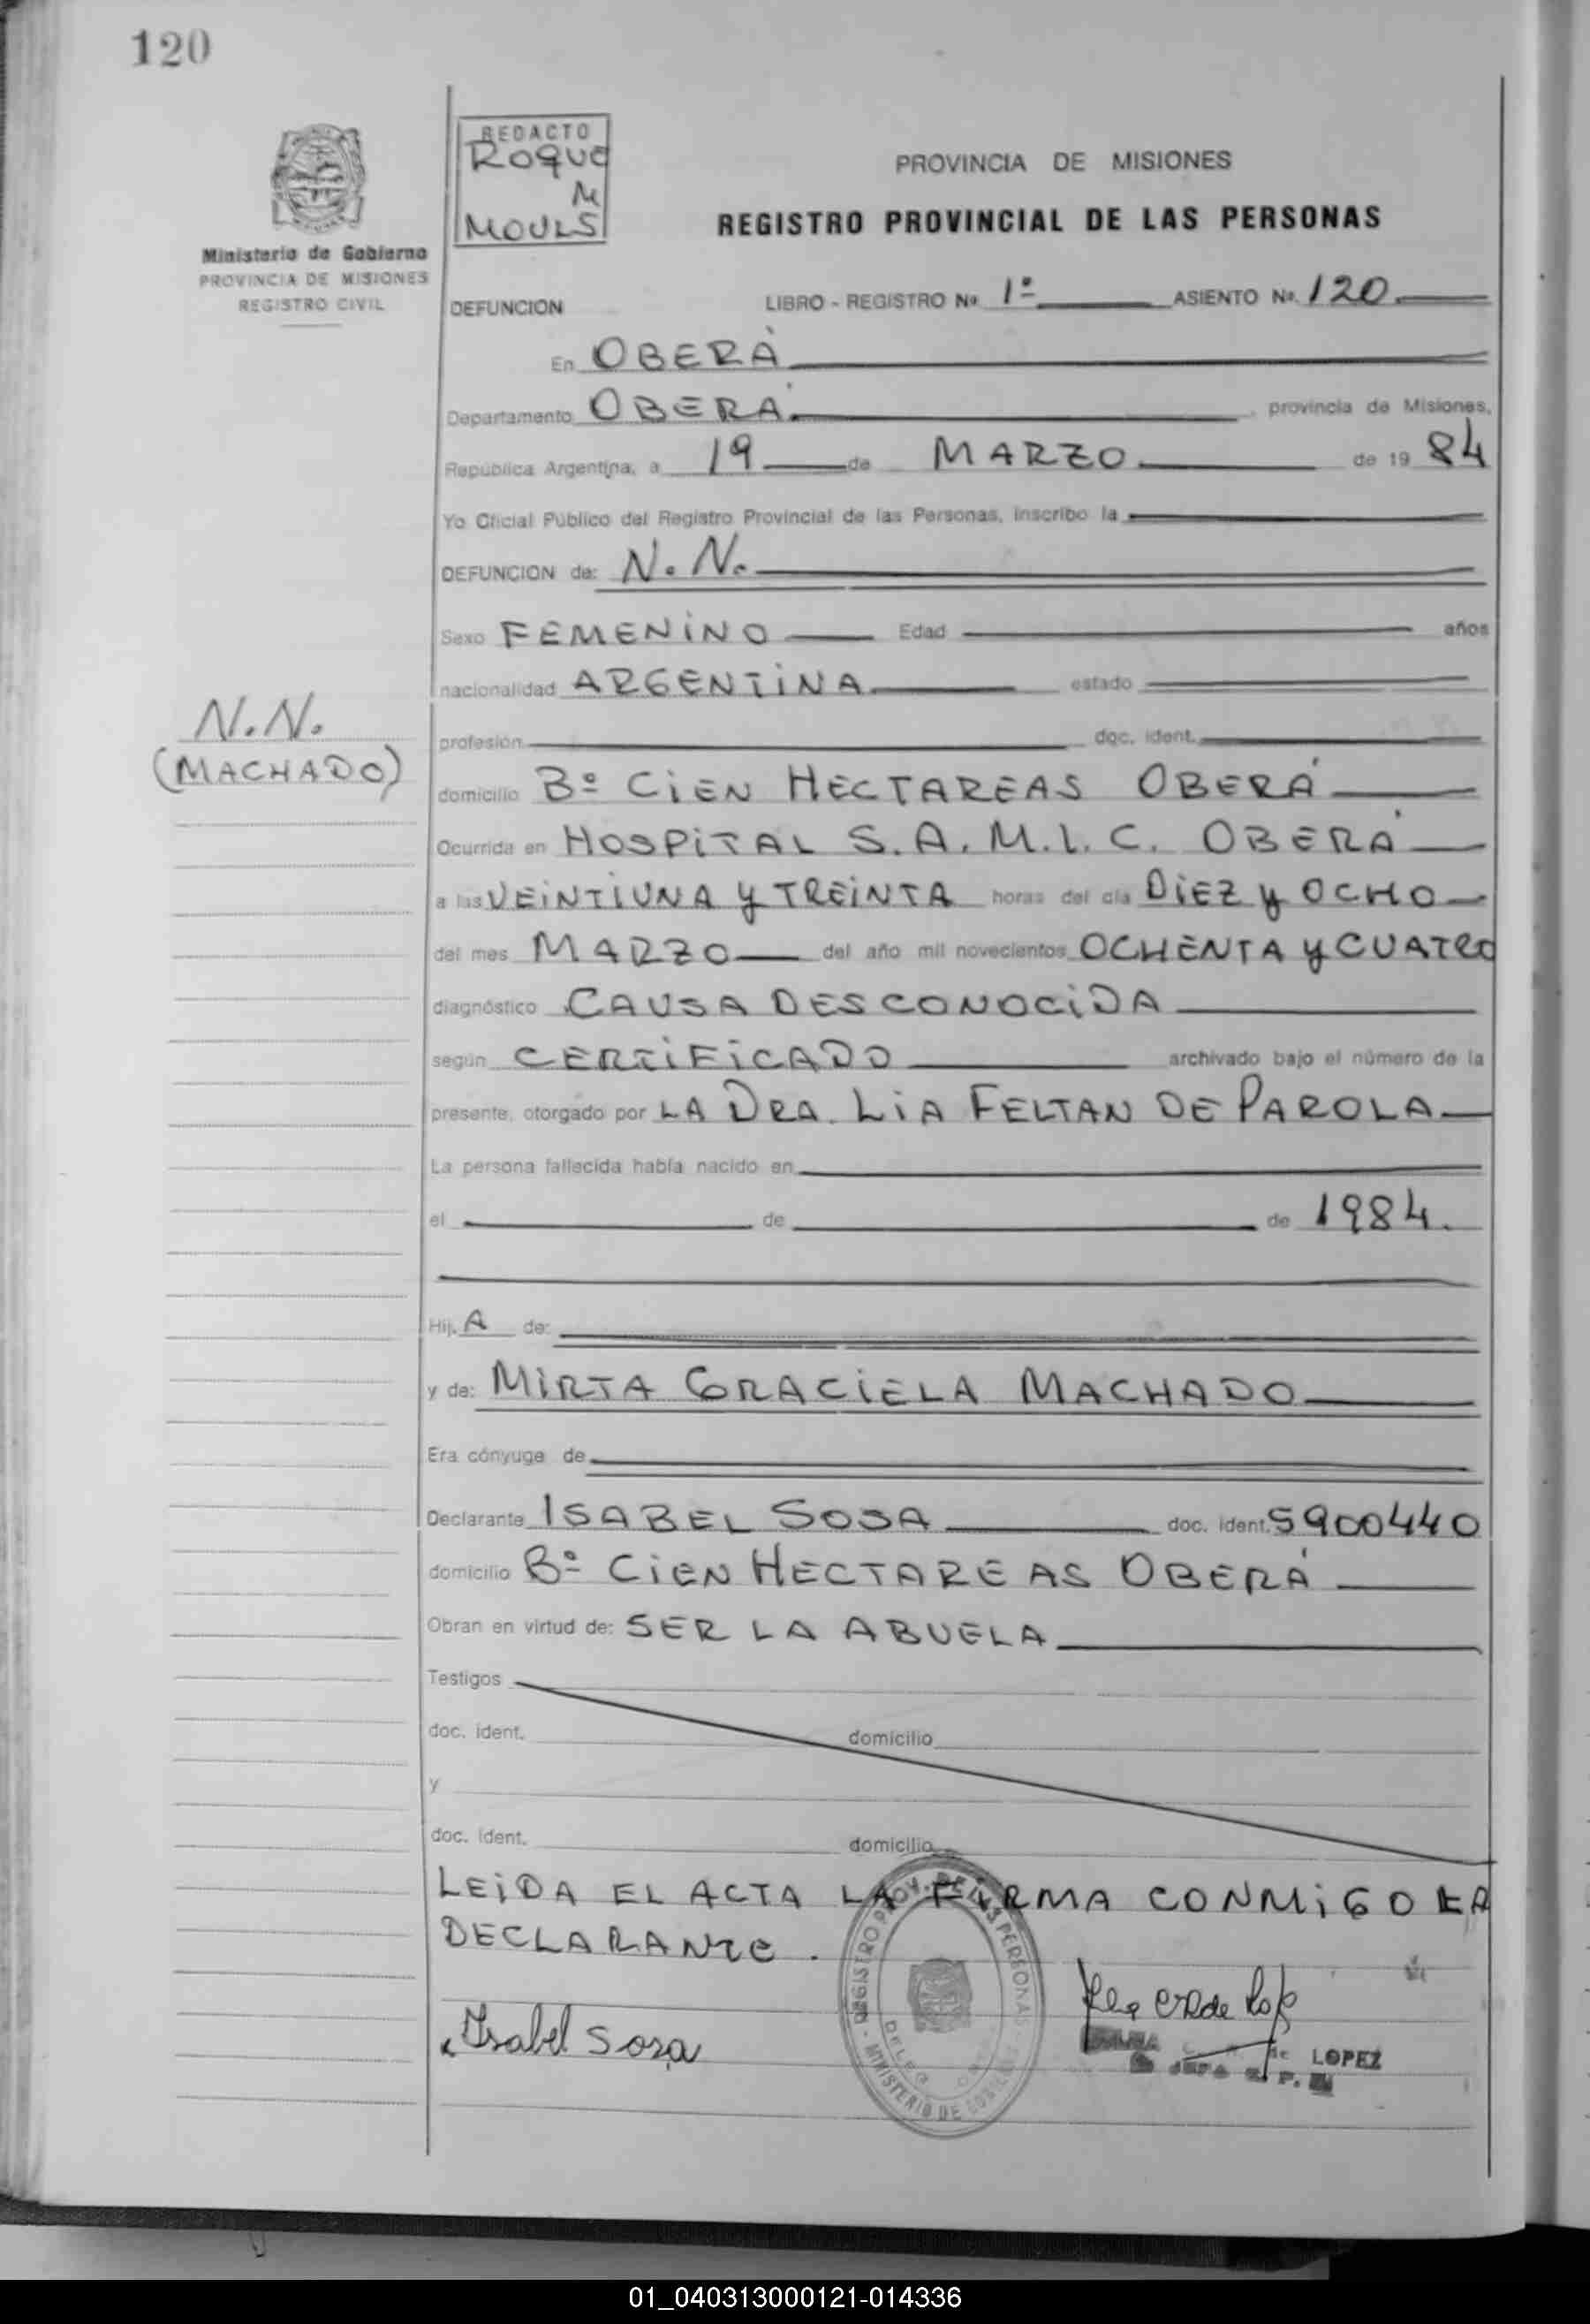 120
REDACTO
ROQUE
M
MOULS
Ministerio de Gobierno
PROVINCIA DE MISIONES
REGISTRO CIVIL
PROVINCIA DE MISIONES
REGISTRO PROVINCIAL DE LAS PERSONAS
DEFUNCION LIBRO - REGISTRO Nº 1º ASIENTO Nº 120
En OBERÁ
Departamento OBERÁ provincia de Misiones,
República Argentina, a 19 de MARZO de 19 84
Yo Oficial Público del Registro Provincial de las Personas, inscribo la
DEFUNCION de: N. N.
Sexo FEMENINO Edad años
nacionalidad ARGENTINA estado
N.N.
(MACHADO)
profesión doc. ident.
domicilio Bº CIEN HECTAREAS OBERÁ
Ocurrida en HOSPITAL S.A.M.I.C. OBERÁ
a las VEINTIUNA Y TREINTA horas del día DIEZ Y OCHO
del mes MARZO del año mil novecientos OCHENTA Y CUATRO
diagnóstico CAUSA DESCONOCIDA
según CERTIFICADO archivado bajo el número de la
presente, otorgado por LA DRA. LIA FELTAN DE PAROLA
La persona fallecida había nacido en
el de de 1984.
Hij A de:
y de: MIRTA GRACIELA MACHADO
Era cónyuge de
Declarante ISABEL SOSA doc. ident. 5900440
domicilio Bº CIEN HECTAREAS OBERÁ
Obran en virtud de: SER LA ABUELA
Testigos
doc. ident. domicilio
y
doc. ident. domicilio
LEIDA EL ACTA LA FIRMA CONMIGO LA
DECLARANTE.
REGISTRO PROV. DE LAS PERSONAS - MINISTERIO DE GOBIERNO
Isabel Sosa
de LOPEZ
JEFA R. P.
01_040313000121-014336